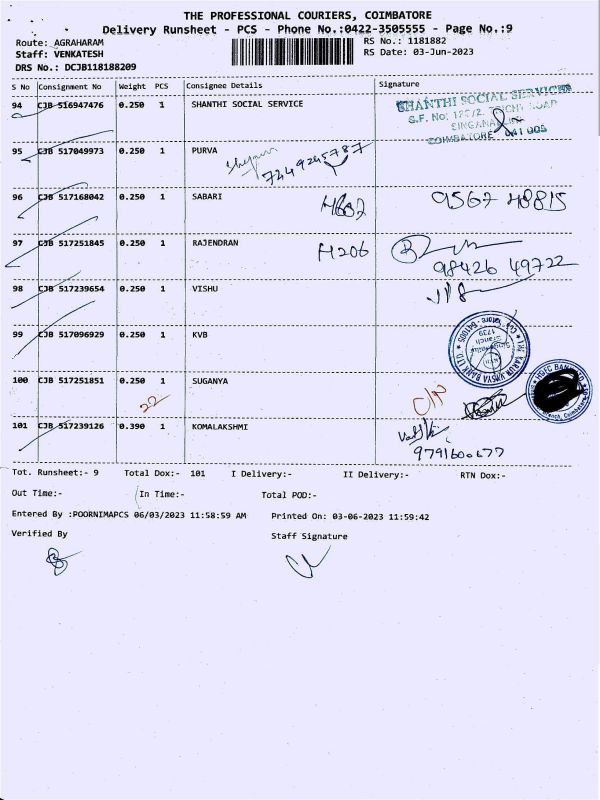 THE PROFESSIONAL COURIERS, COIMBATORE
Delivery Runsheet - PCS - Phone No.:0422-3505555 - Page No.:9
Route: AGRAHARAM RS No.: 1181882
Staff: VENKATESH RS Date: 03-Jun-2023
DRS No.: DCJB118188209
S No Consignment No Weight PCS Consignee Details Signature
94 CJB 516947476 0.250 1 SHANTHI SOCIAL SERVICE
SHANTHI SOCIAL SERVICES
COIMBATORE 641 005
95 CJB 517049973 0.250 1 PURVA 7249245787
96 CJB 517168042 0.250 1 SABARI 9567 48815
97 CJB 517251845 0.250 1 RAJENDRAN H206
98426 49722
98 CJB 517239654 0.250 1 VISHU
99 CJB 517096929 0.250 1 KVB
100 CJB 517251851 0.250 1 SUGANYA
22
101 CJB 517239126 0.390 1 KOMALAKSHMI
9791600677
Tot. Runsheet:- 9 Total Dox:- 101 I Delivery:- II Delivery:- RTN Dox:-
Out Time:- In Time:- Total POD:-
Entered By :POORNIMAPCS 06/03/2023 11:58:59 AM Printed On: 03-06-2023 11:59:42
Verified By Staff Signature